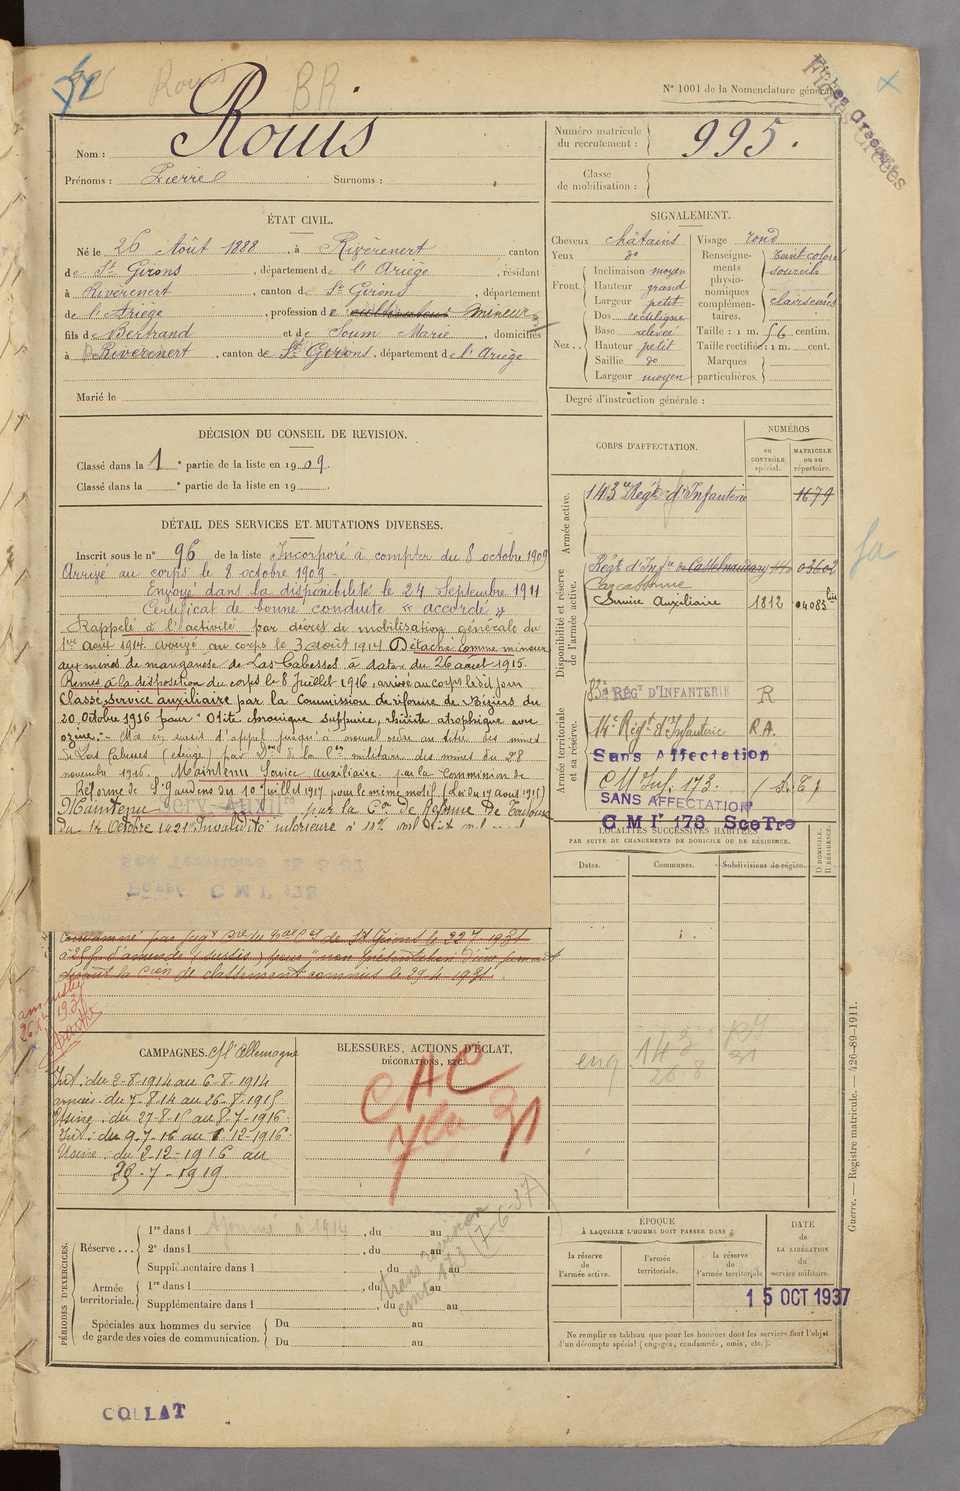 Rouis
BR
N° 1001 de la Nomenclature générale
Nom : Rouis
Prénoms : Pierre Surnoms :
Numéro matricule du recrutement : 995.
Classe de mobilisation :
ÉTAT CIVIL.
Né le 26 Août 1888, à Rivèrenert, canton
de St Girons, département de l'Ariège, résidant
à Rivèrenert, canton de St Girons, département
de l'Ariège, profession de cultivateur mineur
fils de Bertrand et de Soum Marie, domiciliés
à Rivèrenert, canton de St Girons, département de l'Ariège
Marié le
SIGNALEMENT.
Cheveux châtains
Yeux do
Front Inclinaison moyen
Hauteur grand
Largeur petit
Nez Dos rectiligne
Base relevée
Hauteur petit
Saillie do
Largeur moyen
Visage rond
Renseignements physionomiques complémentaires. teint coloré sourcils clairsemés
Taille : 1 m. 56 centim.
Taille rectifiée : 1 m. cent.
Marques particulières.
Degré d'instruction générale :
DÉCISION DU CONSEIL DE REVISION.
Classé dans la 1e partie de la liste en 1909.
Classé dans la e partie de la liste en 19
DÉTAIL DES SERVICES ET MUTATIONS DIVERSES.
Inscrit sous le n° 96 de la liste Incorporé à compter du 8 octobre 1909
Arrivé au corps le 8 octobre 1909
Envoyé dans la disponibilité le 24 Septembre 1911
Certificat de bonne conduite "accordé"
Rappelé à l'activité par décret de mobilisation générale du
1er août 1914. Arrivé au corps le 3 août 1914 Détaché comme mineur
aux mines de manganèse de Las Cabesses à dater du 26 août 1915.
Remis à la disposition du corps le 8 Juillet 1916, arrivé au corps le dit jour
Classé service auxiliaire par la Commission de réforme de Béziers du
20 Octobre 1916 pour "Otite chronique suppurée, rhinite atrophique avec
ozène". Mis en sursis d'appel jusqu'à nouvel ordre au titre des mines
de Las Cabesses (Ariège) par
novembre 1916. Maintenu Service Auxiliaire par la Commission de
Réforme de St Gaudens du 10 juillet 1917 pour le même motif (Loi du 17 août 1915)
Maintenu Serv. Auxilre par la Con de Réforme de Toulouse
du 14 Octobre 1921 Invalidité inférieure à 10%
Condamné par jugt du de St Girons le 22 7 1931
à 25 f d'amende (sursis) pour, non présentation d'une jument
devant la Cion de classement commis le 29 4 1931.
CORPS D'AFFECTATION.
NUMÉROS
AU CONTRÔLE spécial.
MATRICULE ou au répertoire.
Armée active.
143e Régt d'Infanterie 1679
Disponibilité et réserve de l'armée active.
Régt d'Infie de Castelnaudary 03602
Carcassonne
Service Auxiliaire 1812 04085 bis
Armée territoriale et sa réserve.
83e RÉGt D'INFANTERIE R
14e Régt d'Infanterie R.A.
Sans Affectation
C M Inf. 173.
SANS AFFECTATION
C M Ie 173
LOCALITÉS SUCCESSIVES HABITÉES
PAR SUITE DE CHANGEMENTS DE DOMICILE OU DE RÉSIDENCE.
Dates. Communes. Subdivisions de région. D. DOMICILE. R. RÉSIDENCE.
CAMPAGNES. Cte l'Allemagne
Int. : du 2-8-1914 au 6-8-1914
armées. du 7-8-14 au 26-8-1915
Usine. du 27-8-15 au 8-7-1916
Int. : du 9-7-16 au 1-12-1916
Usine : du 2-12-1916 au
-7-1919
BLESSURES, ACTIONS D'ÉCLAT,
DÉCORATIONS, ETC.
CAC
31
PÉRIODES D'EXERCICES.
Réserve... 1re dans l Ajourné à 1914, du au
2e dans l, du au
Supplémentaire dans l, du au
Armée territoriale. 1re dans l, du au
Supplémentaire dans l, du au
Spéciales aux hommes du service de garde des voies de communication. Du au
Du au
ÉPOQUE
À LAQUELLE L'HOMME DOIT PASSER DANS :
la réserve de l'armée active.
l'armée territoriale.
la réserve de l'armée territoriale
DATE de LA LIBÉRATION du service militaire.
15 OCT 1937
Ne remplir ce tableau que pour les hommes dont les services font l'objet
d'un décompte spécial (engagés, condamnés, omis, etc.).
Guerre. — Registre matricule. — 426-89-1911.
COLLAT